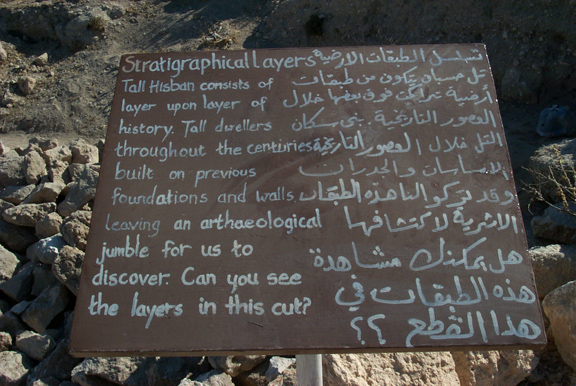 Stratigraphical Layers
Tall Hisban consists of
layer upon layer of
history. Tall dwellers
throughout the centuries
built on previous
foundations and walls
leaving an arthaeological
jumble for us to
discover. Can you see
the layers in this cut?
تسلسل الطبقات الارضية
تل حسبان يتكون من طبقات
أرضية تراكمت فوق بعضها خلال
العصور التاريخية. بنى سكان
التل خلال العصور التاريخية
الاساسات والجدران
وقد تركو لنا هذة الطبقات
الاثرية لاكتشافها
هل يمكنك مشاهدة
هذه الطبقات في
هذا القطع ؟؟